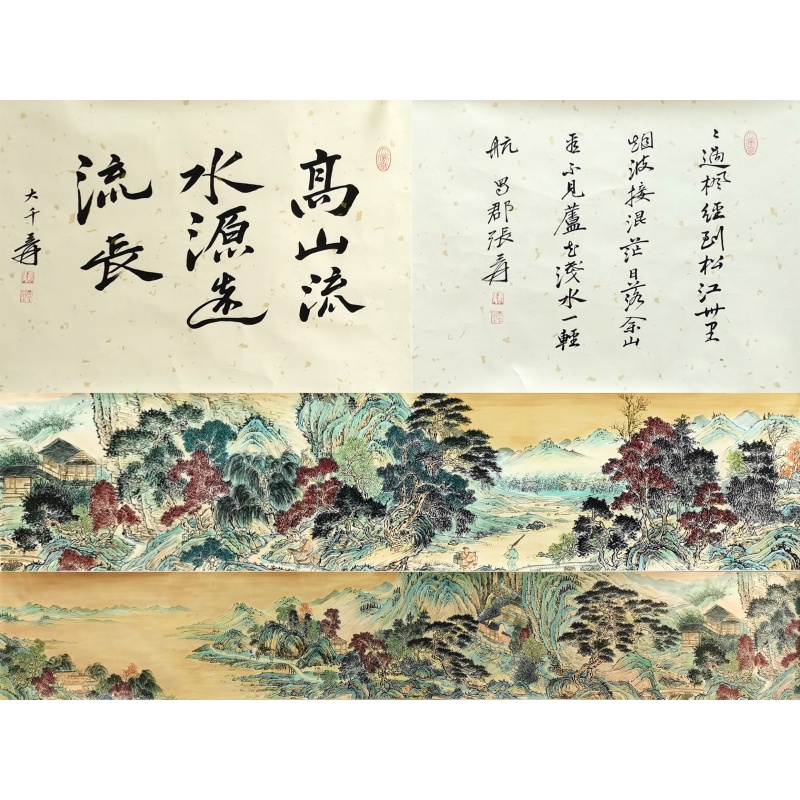 〻過楓經到松江卅里
烟波接混茫日落余山
看不見蘆花淺水一輕
航 蜀郡張爰
高山流
水源遠
流長
大千爰